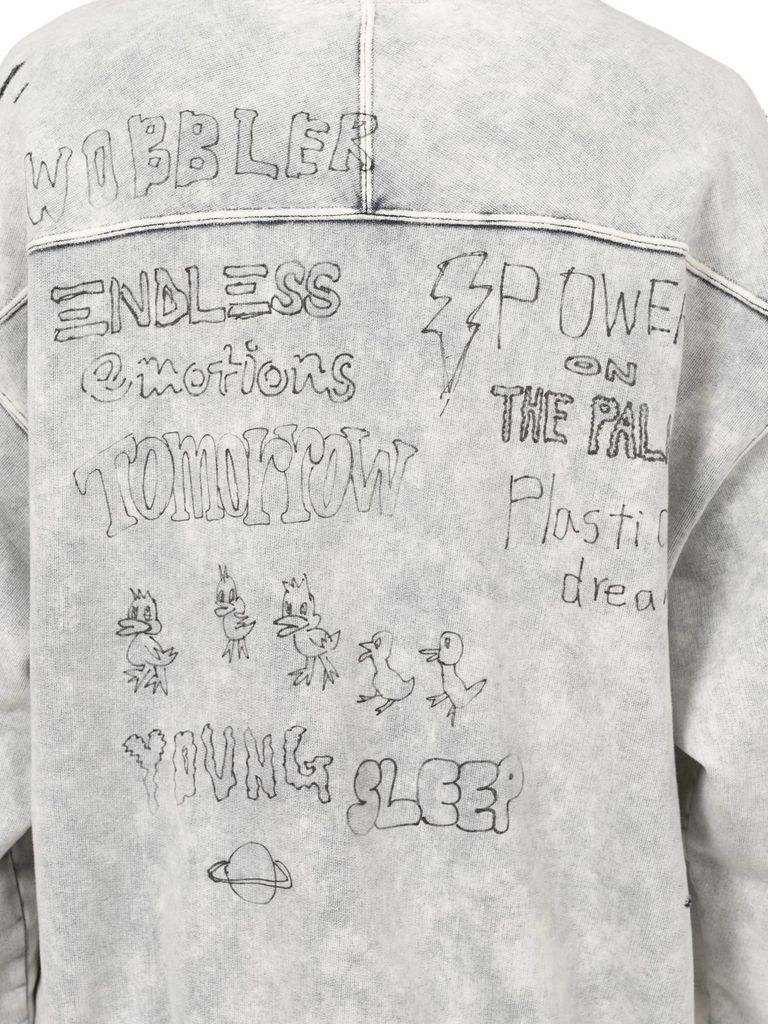 WOBBLER
ENDLESS
emotions
TOMORROW
POWER
ON
THE PAL
Plastic
drea
YOUNG
SLEEP